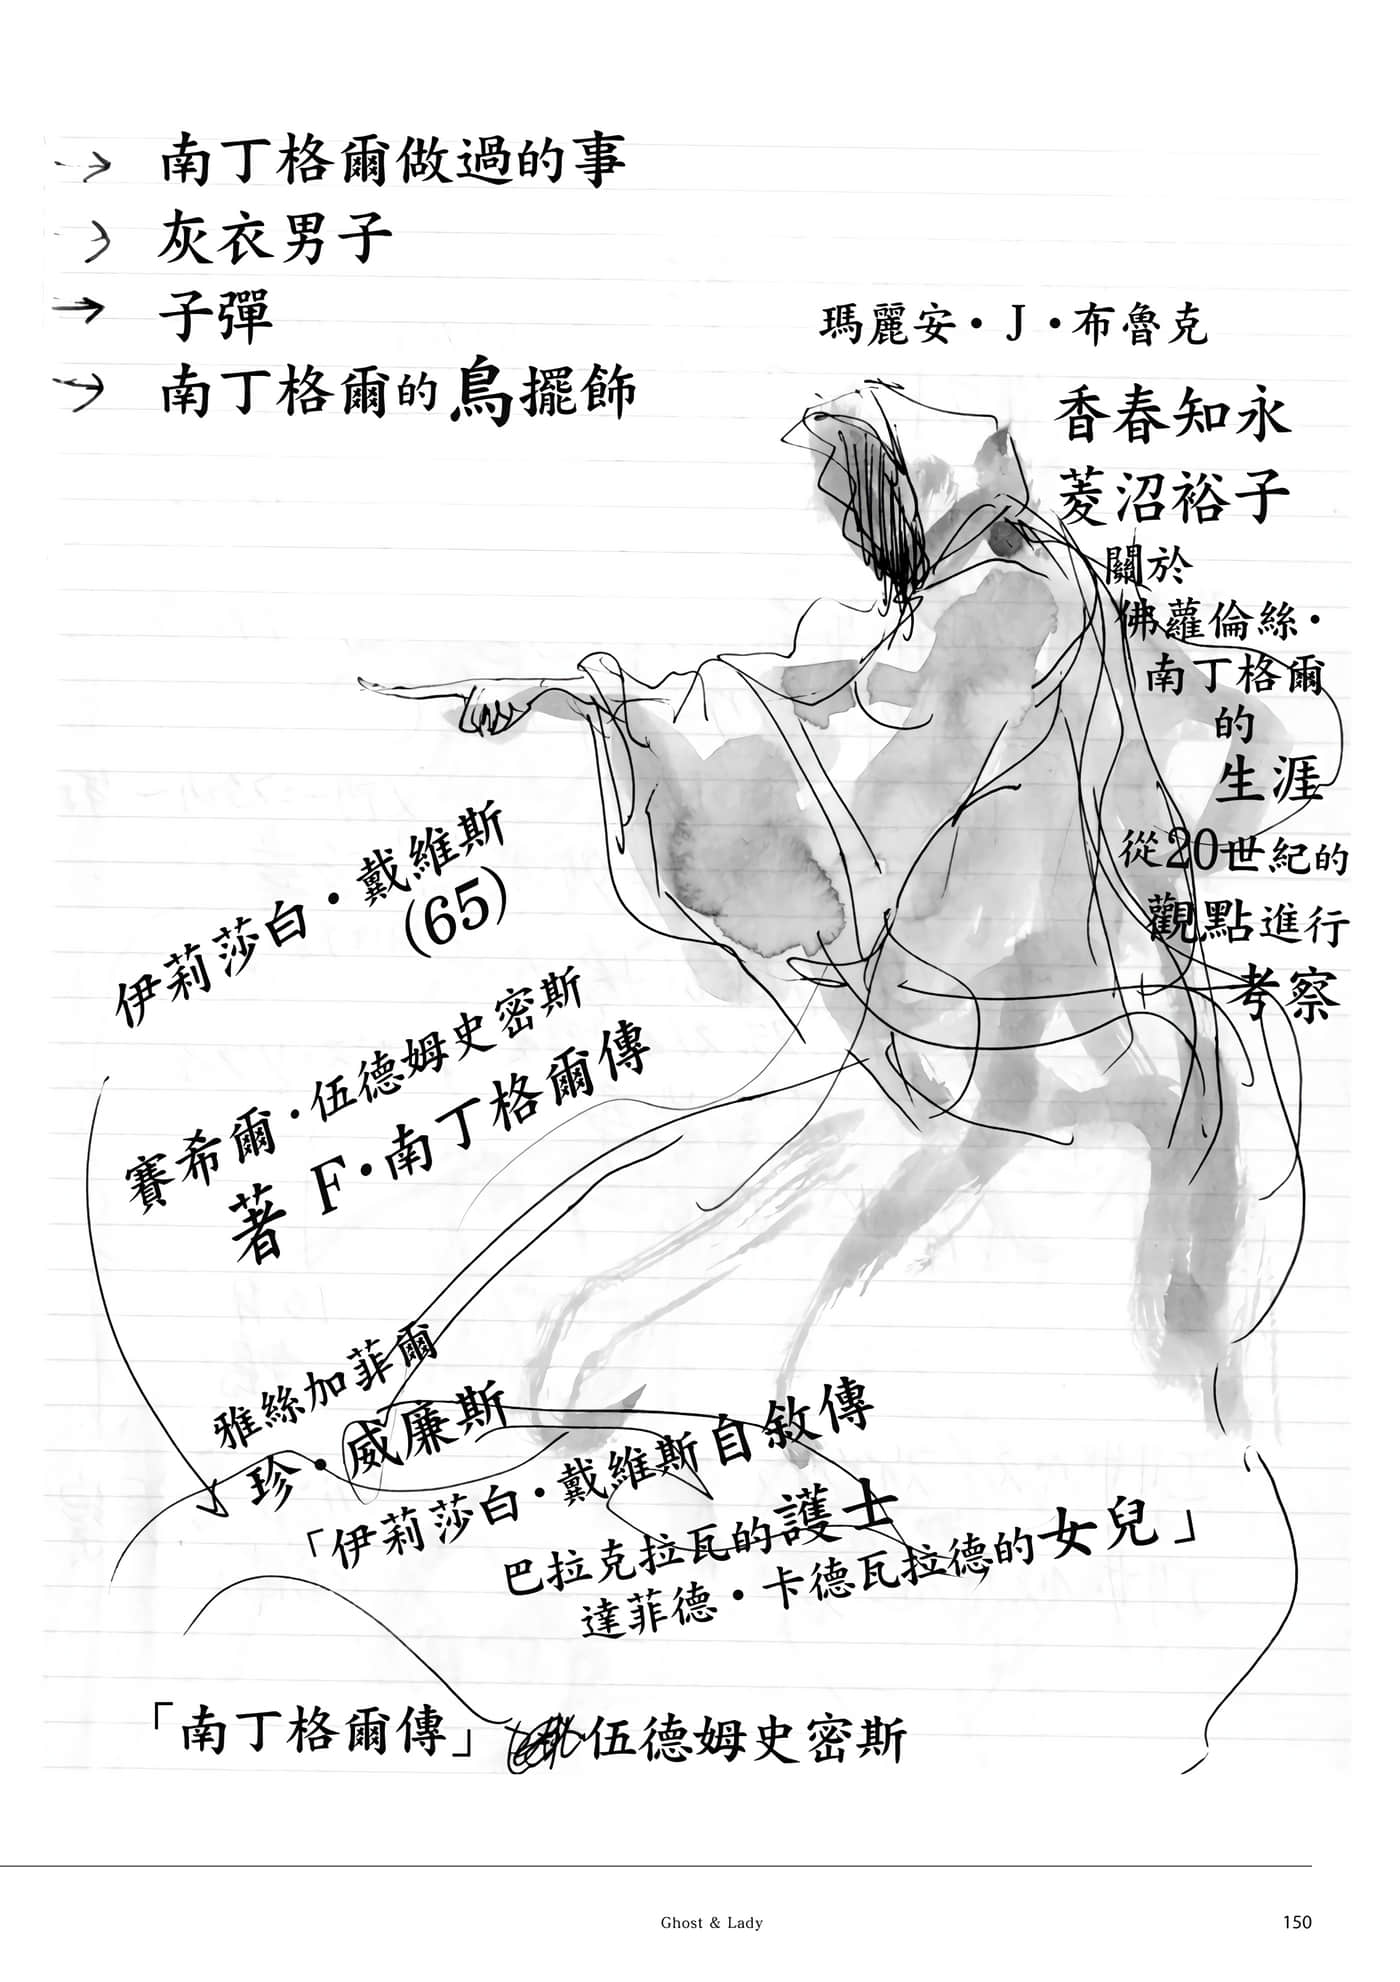 南丁格爾做過的事
灰衣男子
子彈
南丁格爾的鳥擺飾
瑪麗安・J・布魯克
香春知永
菱沼裕子
關於
佛蘿倫絲・
南丁格爾
的
生涯
從20世紀的
觀點進行
考察
伊莉莎白・戴維斯
(65)
賽希爾・伍德姆史密斯
著 F・南丁格爾傳
雅絲加菲爾
珍・威廉斯
「伊莉莎白・戴維斯自敘傳
巴拉克拉瓦的護士
達菲德・卡德瓦拉德的女兒」
「南丁格爾傳」 伍德姆史密斯
Ghost & Lady
150